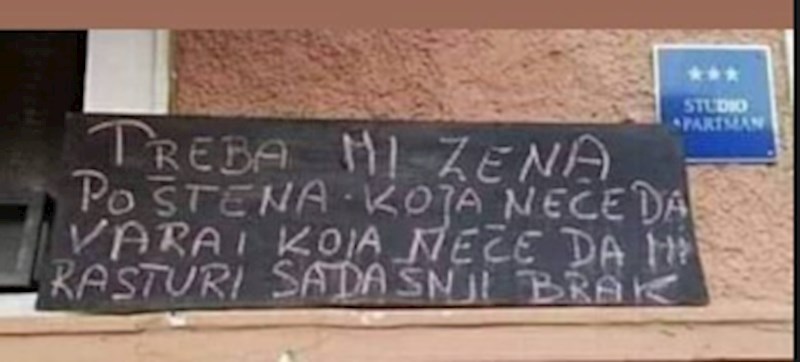 TREBA MI ŽENA
POŠTENA. KOJA NEĆE DA
VARA I KOJA NEĆE DA MI
RASTURI SADAŠNJI BRAK
★★★
STUDIO
APARTMAN